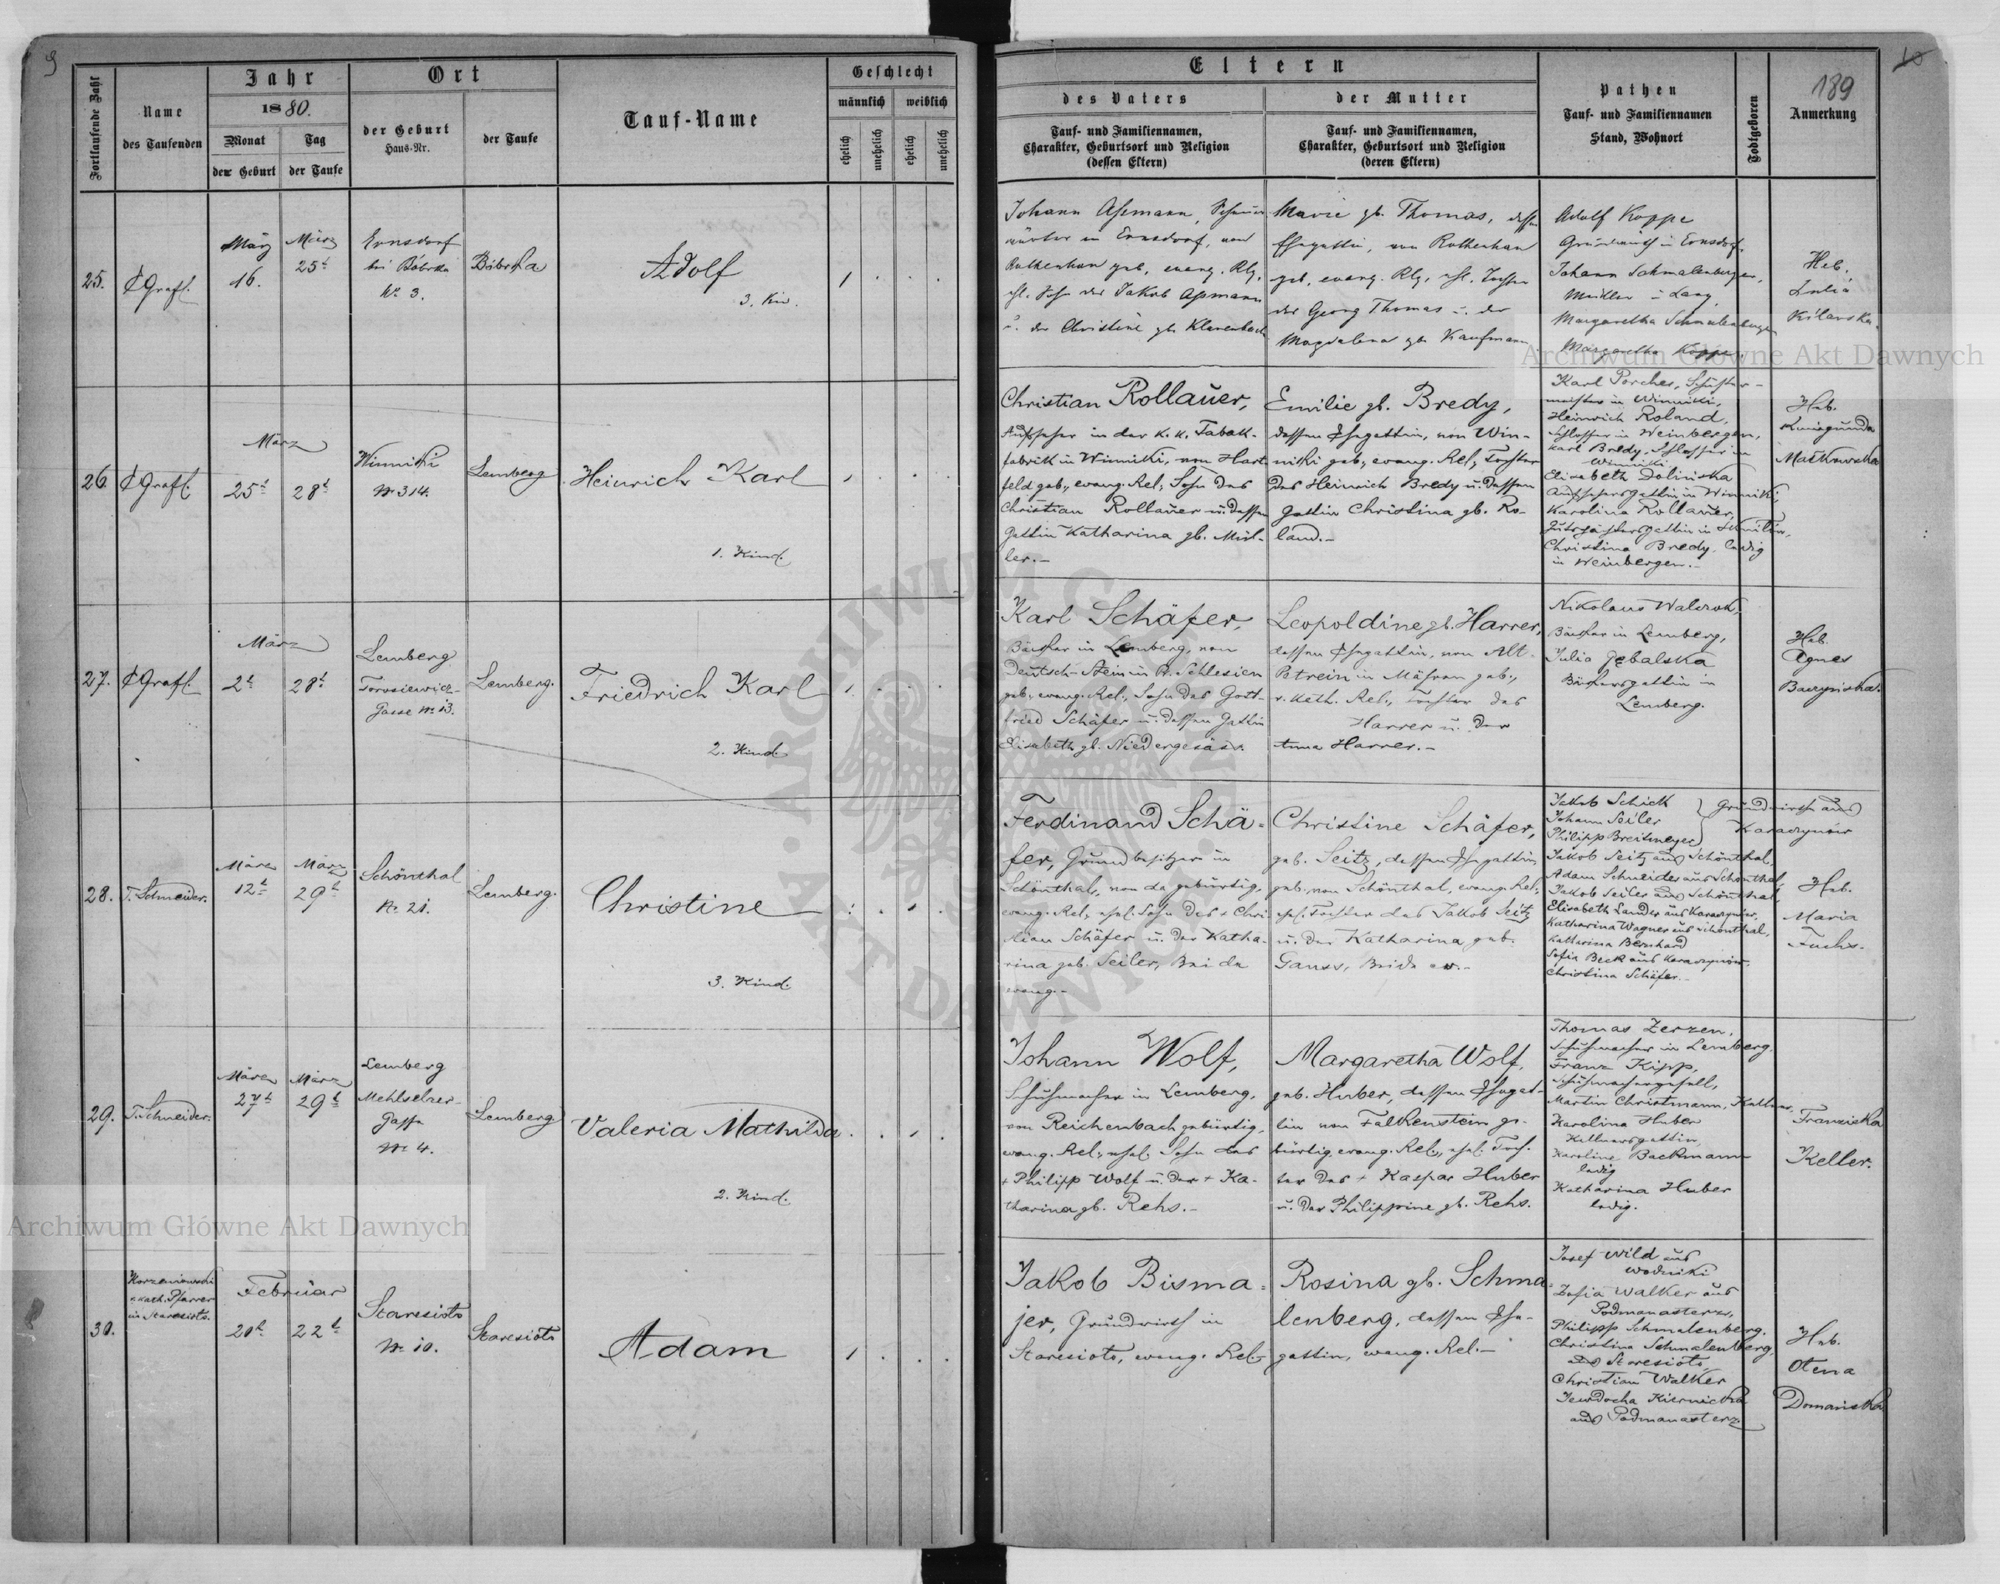 9
Fortlaufende Zahl
Name
des Taufenden
Jahr
1880.
Monat
der Geburt
Tag
der Taufe
Ort
der Geburt
Haus-Nr.
der Taufe
Tauf-Name
Geschlecht
männlich
weiblich
ehelich
unehelich
ehelich
unehelich
25.
März
16.
März
25t
Ernsdorf
bei Bóbrka
Nr. 3.
Bóbrka
Adolf
3. Kin.
26.
März
25t
28t
Winniki
Nr 314.
Lemberg
Heinrich Karl
1. Kind.
27.
März
2t
28t
Lemberg
Torosiewicz-
Gasse Nr 13.
Lemberg.
Friedrich Karl
2. Kind.
28.
T. Schneider.
März
12t
März
29t
Schönthal
Nr. 21.
Lemberg.
Christine
3. Kind.
29.
T. Schneider.
März
27t
März
29t
Lemberg
Gasse
Nr 4.
Lemberg
Valeria Mathilda
2. Kind.
30.
r. kath. Pfarrer
in Staresioło.
Februar
20t
22t
Staresioło
Nr 10.
Staresioło
Adam
10
189
Eltern
des Vaters
Tauf- und Familiennamen,
Charakter, Geburtsort und Religion
(dessen Eltern)
der Mutter
Tauf- und Familiennamen,
Charakter, Geburtsort und Religion
(deren Eltern)
Pathen
Tauf- und Familiennamen
Stand, Wohnort
Todtgeboren
Anmerkung
Johann Aßmann,
in Ernsdorf, von
geb., evang. Rlg.,
ehl. Sohn des Jakob Aßmann
u. der Christine gb.
Marie gb. Thomas, dessen
Ehegattin, von Rottenhan
geb., evang. Rlg., ehl. Tochter
des Georg Thomas u. der
Magdalena gb. Kaufmann
Adolf Koppe
Grundwirth in Ernsdorf.
Johann Schmalenberger,
Margaretha Schmalenberger
Margaretha Koppe
Heb.
Julia
Christian Rollauer,
Aufseher in der k. k. Tabak-
fabrik in Winniki, von Hart-
feld geb., evang. Rel., Sohn des
Christian Rollauer u. dessen
Gattin Katharina gb. Mül-
ler.-
Emilie gb. Bredy,
dessen Ehegattin, von Win-
niki geb., evang. Rel., Tochter
des Heinrich Bredy u. dessen
Gattin Christina gb. Ro-
land.-
Karl Porches, Schuster-
meister in Winniki,
Heinrich Roland,
Schlosser in Weinbergen,
Karl Bredy, Schlosser in
Winniki
Elisabeth Dolinska
Aufsehersgattin in Winniki,
Karolina Rollauer,
Christina Bredy, ledig
in Weinbergen.-
Heb.
Kunigunda
Małkowska
Karl Schäfer,
Bäcker in Lemberg, von
Deutsch-Stein in Pr. Schlesien
geb., evang. Rel., Sohn des Gott-
fried Schäfer u. dessen Gattin
Elisabeth gb. Niedergesäss.
Leopoldine gb. Harrer,
dessen Ehegattin, von Alt-
Petrein in Mähren geb.,
r. kath. Rel., Tochter des
Harrer u. der
Anna Harrer.-
Nikolaus
Bäcker in Lemberg,
Julia Gębalska
Bäckersgattin in
Lemberg.
Heb.
Agnes
Ferdinand Schä-
fer, Grundbesitzer in
Schönthal, von da gebürtig,
evang. Rel., ehel. Sohn des + Chri-
stian Schäfer u. der Katha-
rina geb. Seiler, Beide
evang.-
Christine Schäfer,
geb. Seitz, dessen Ehegattin,
geb. von Schönthal, evang. Rel.,
ehel. Tochter des Jakob Seitz
u. der Katharina geb.
Ganss, Beide ev.-
Jakob Schick
Johann Seiler
Philipp Breitmeyer
Grundwirthe aus
Jakob Seitz aus Schönthal,
Adam Schneider aus Schönthal,
Jakob Seiler aus Schönthal,
Elisabeth Sander aus
Katharina Wagner aus Schönthal,
Katharina Bernhard
Sofia Beck aus
Christina Schäfer.-
Heb.
Maria
Fuchs.
Johann Wolf,
Schuhmacher in Lemberg,
von Reichenbach gebürtig,
evang. Rel., ehel. Sohn des
+ Philipp Wolf u. der + Ka-
tharina gb. Rehs.-
Margaretha Wolf,
geb. Huber, dessen Ehegat-
tin von Falkenstein ge-
bürtig, evang. Rel., ehel. Toch-
ter des + Kaspar Huber
u. der Philippine gb. Rehs.
Thomas Zerzen,
Schuhmacher in Lemberg,
Franz Kipp,
Schuhmachergesell,
Martin Christmann, Kellner,
Karolina Huber
Kellnersgattin,
Karoline Backmann
ledig
Katharina Huber
ledig.
Franziska
Keller.
Jakob Bisma-
jer, Grundwirth in
Staresioło, evang. Rel.-
Rosina gb. Schma-
lenberg, dessen Ehe-
gattin, evang. Rel.-
Josef Wild aus
Wodniki
Zofia Walker aus
Podmanasterz,
Philipp Schmalenberg,
Christina Schmalenberg,
aus Staresioło,
Christian Walker
aus Podmanasterz
Heb.
Olena
Domańska
Archiwum Główne Akt Dawnych
Archiwum Główne Akt Dawnych
ARCHIWUM GŁÓWNE AKT DAWNYCH